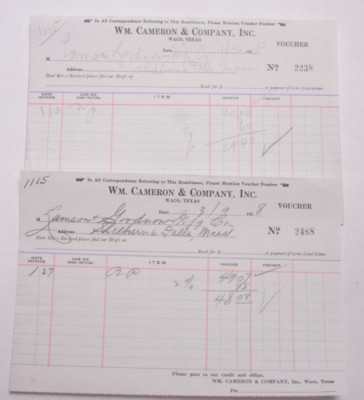 1115
In All Correspondence Referring to This Remittance, Please Mention Voucher Number
WM. CAMERON & COMPANY, INC.
WACO, TEXAS
VOUCHER
M Lamson Goodnow
Address
No 2238
Dear Sir:—Enclosed please find our Draft on
Bank for $
in payment of items listed below:
DATE INVOICE
CAR NO. AND INITIAL
ITEM
INVOICE
VOUCHER
1115
In All Correspondence Referring to This Remittance, Please Mention Voucher Number
WM. CAMERON & COMPANY, INC.
WACO, TEXAS
VOUCHER
3/9 8
M Lamson & Goodnow Mfg Co
No 2488
Address Shelburne Falls, Mass
Dear Sir:—Enclosed please find our Draft on
Bank for $
in payment of items listed below:
DATE INVOICE
CAR NO. AND INITIAL
ITEM
INVOICE
VOUCHER
1 27
4907
2%
98
4809
Please pass to our credit and oblige,
WM. CAMERON & COMPANY, Inc., Waco, Texas
Per